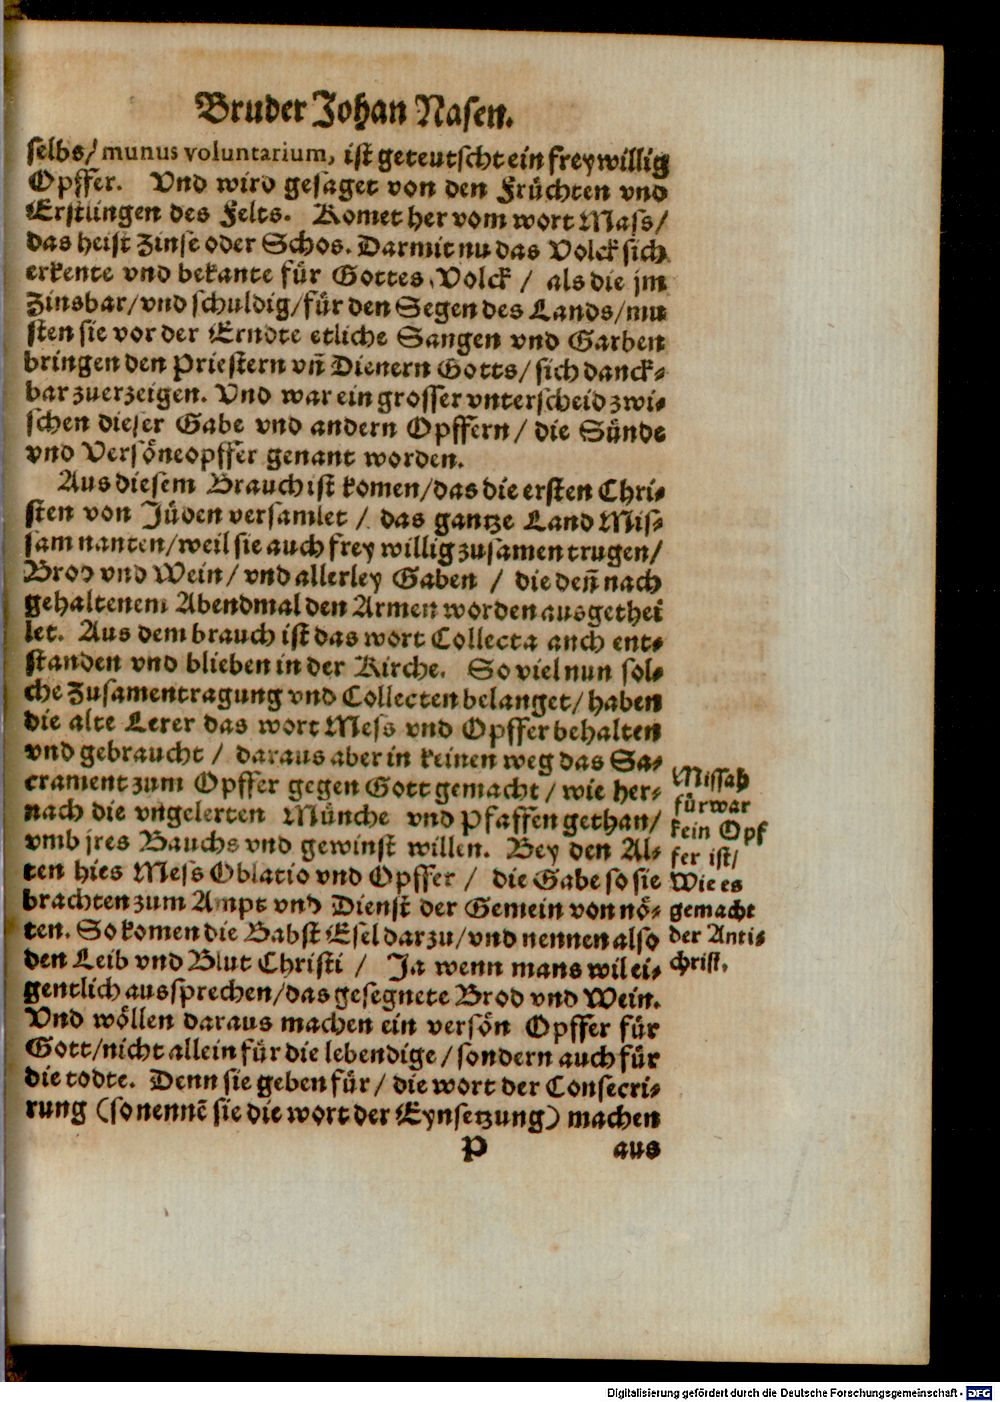 Bruder Johan Nasen.
selbs/ munus voluntarium, ist geteutscht ein freywillig
Opffer. Vnd wird gesaget von den Früchten vnd
Erstlingen des Felts. Komet her vom wort Mass/
das heist Zinse oder Schos. Darmit nu das Volck sich
erkente vnd bekante für Gottes Volck / als die jm
Zinsbar/vnd schuldig/für den Segen des Lands/mu
sten sie vor der Erndte etliche Sangen vnd Garben
bringen den Priestern vñ Dienern Gotts/ sich danck⸗
bar zuerzeigen. Vnd war ein grosser vnterscheid zwi⸗
schen dieser Gabe vnd andern Opffern/ die Sünde
vnd Versöneopffer genant worden.
Aus diesem Brauch ist komen/das die ersten Chri⸗
sten von Jüden versamlet / das gantze Land Mis⸗
sam nanten/weil sie auch frey willig zusamen trugen/
Brod vnd Wein/ vnd allerley Gaben / die deñ nach
gehaltenem Abendmal den Armen worden ausgethei
let. Aus dem brauch ist das wort Collecta auch ent⸗
standen vnd blieben in der Kirche. So viel nun sol⸗
che Zusamentragung vnd Collecten belanget/ haben
die alte Lerer das wort Mess vnd Opffer behalten
vnd gebraucht / daraus aber in keinen weg das Sa⸗
crament zum Opffer gegen Gott gemacht / wie her⸗
nach die vngelerten Münche vnd Pfaffen gethan/
vmb jres Bauchs vnd gewinst willen. Bey den Al⸗
ten hies Mess Oblatio vnd Opffer / die Gabe so sie
brachten zum Ampt vnd Dienst der Gemein von nö⸗
ten. So komen die Babst Esel darzu/ vnd nennen also
den Leib vnd Blut Christi / Ja wenn mans wil ei⸗
gentlich aussprechen/das gesegnete Brod vnd Wein.
Vnd wöllen daraus machen ein versön Opffer für
Gott/nicht allein für die lebendige/ sondern auch für
die todte. Denn sie geben für/ die wort der Consecri⸗
rung (so nennē sie die wort der Eynsetzung) machen
P aus
Missah
fürwar
kein Opf
fer ist/
Wie es
gemacht
der Anti⸗
christ.
Digitalisierung gefördert durch die Deutsche Forschungsgemeinschaft - DFG